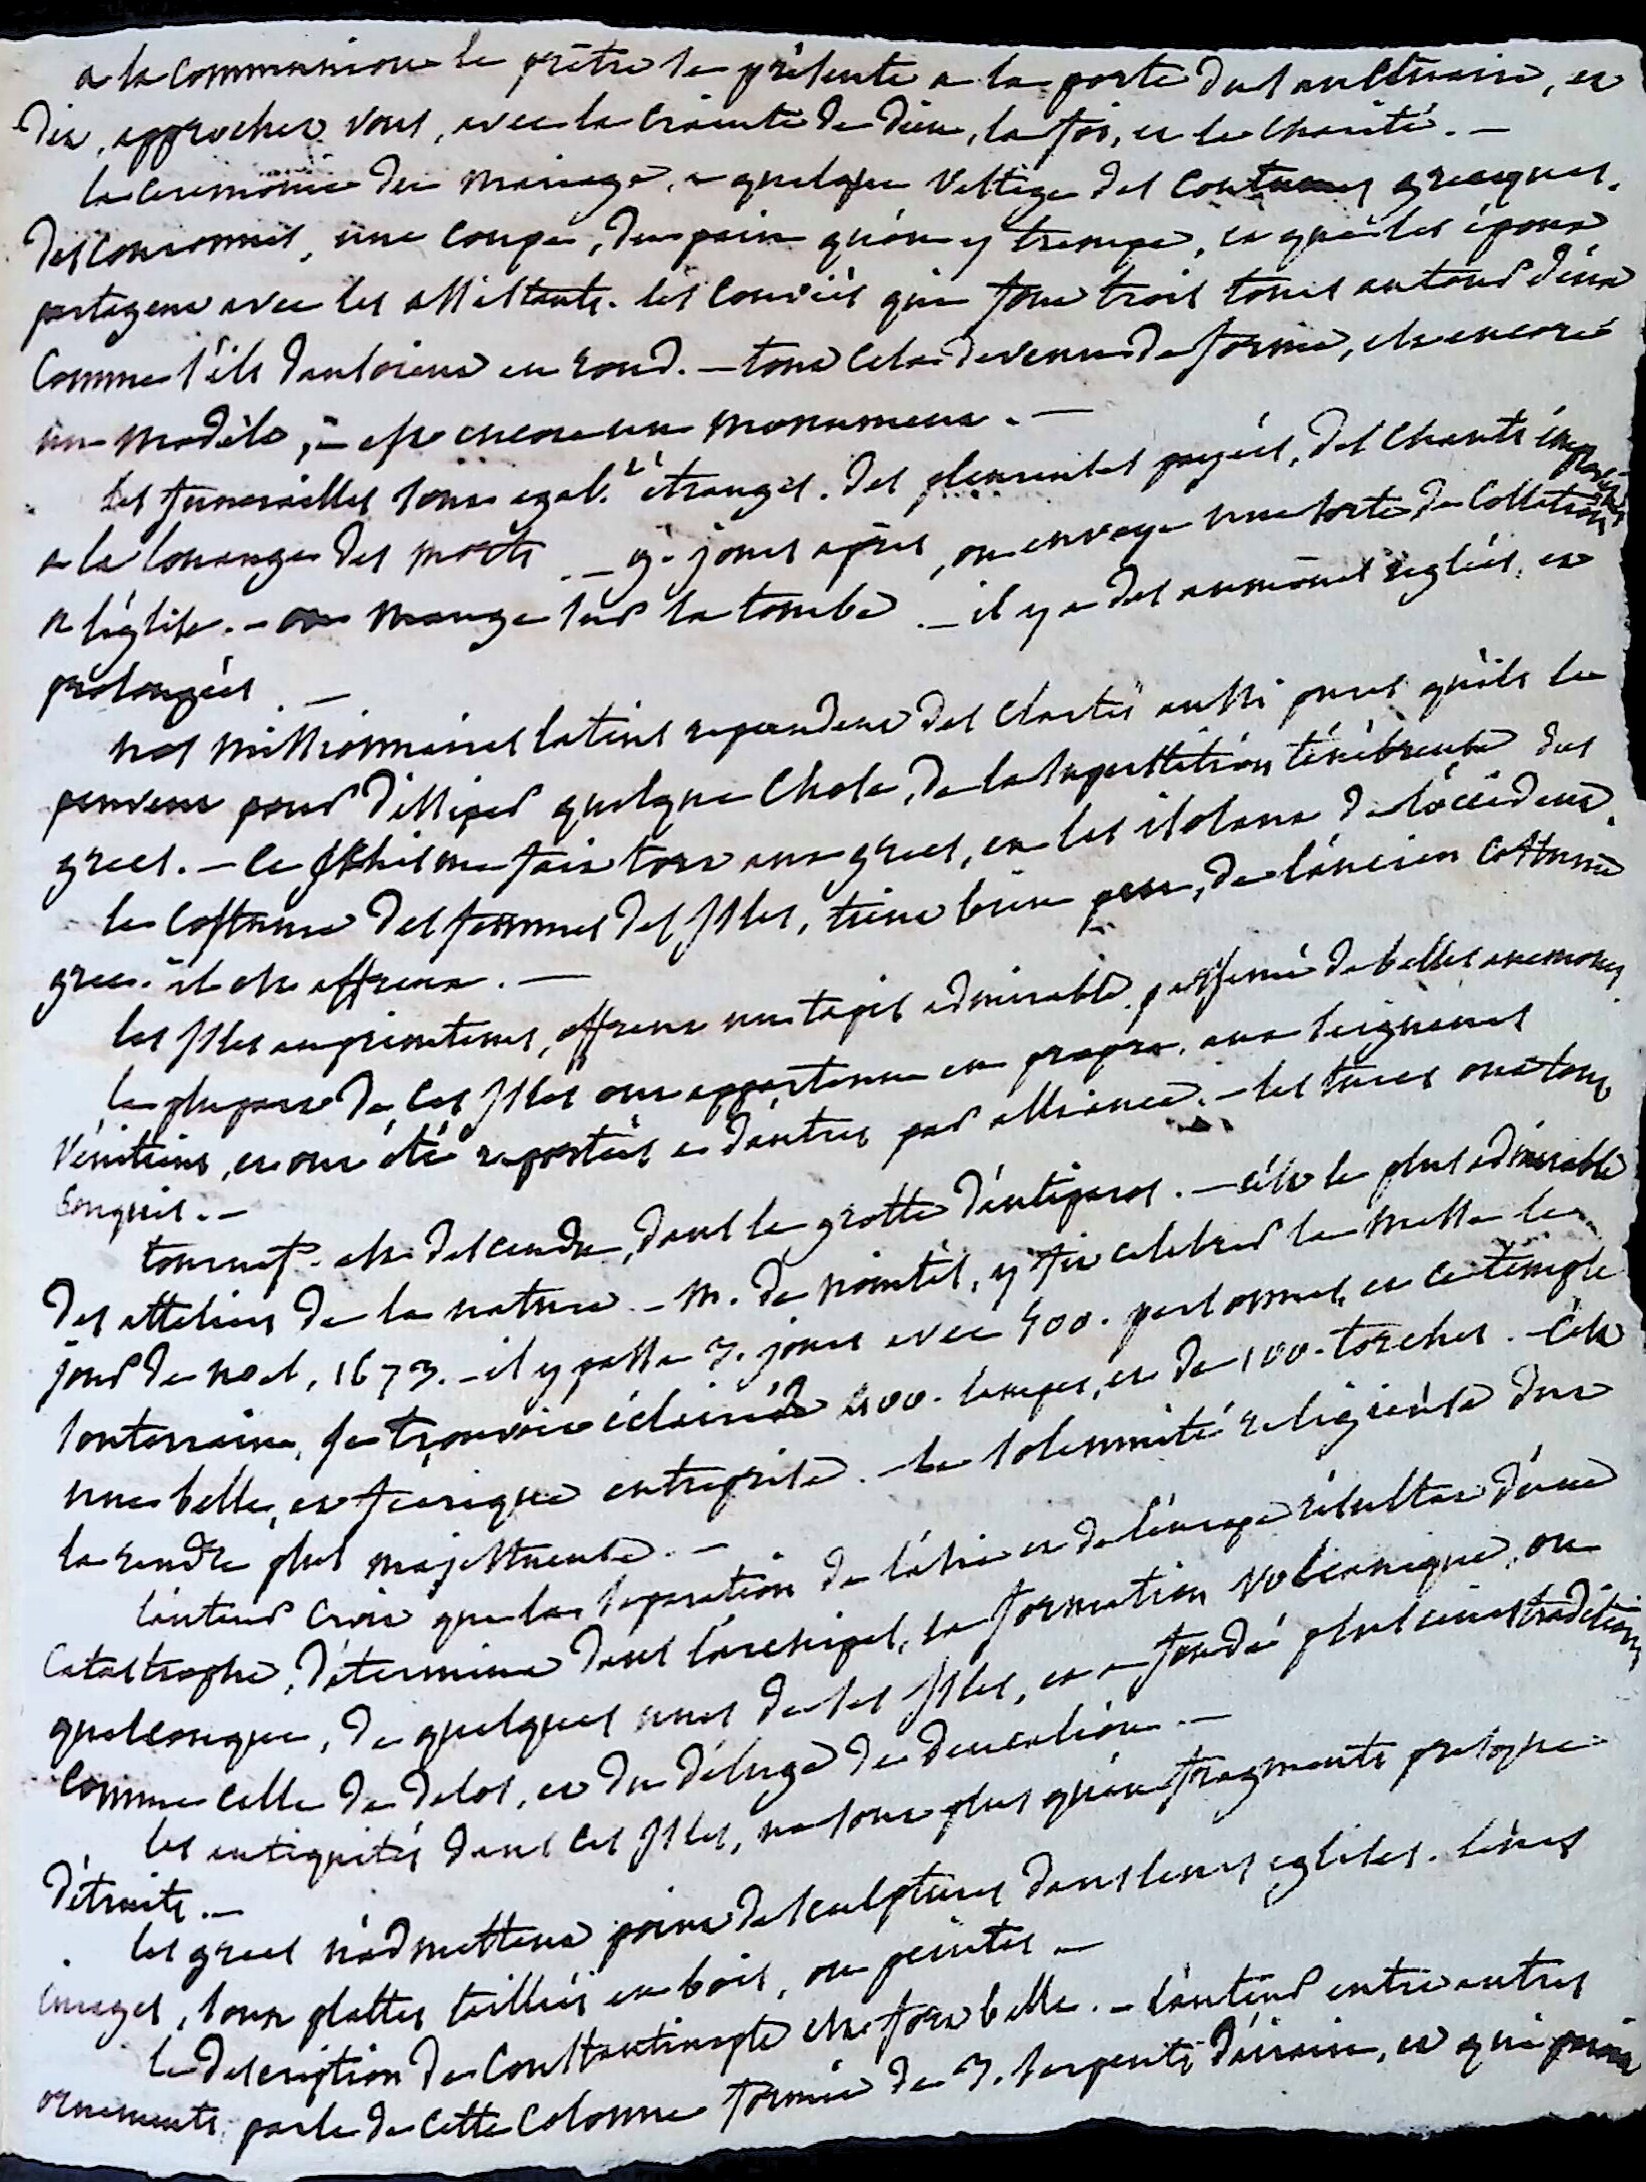 a la communion le prêtre se présente a la porte du sanctuaire, et
dit, approchez vous, avec la crainte de dieu, la foi, et la charité. —
la ceremonie du mariage, a quelque vestige des coutumes grecques.
des couronnes, une coupe, du pain qu'on y trempe, et que les époux
partagent avec les assistants. les conviés qui font trois tours autour d'eux
comme s'ils dansoient en rond. — tout cela devenu de forme, est encore
un modèle, et est encore un monument. —
les funerailles sont egal.t étranges. des pleureuses payées, des chants improvisés
a la louange des morts — 9. jours après, on envoye une sorte de collation
a l'église. — on mange sur la tombe — il y a des aumônes reglées, et
prolongées. —
nos missionnaires latins repandent des clartés aussi pures qu'ils le
peuvent pour dissiper quelque chose, de la superstition ténébreuse des
grecs. — le schisme fait tort aux grecs, en les isolant de l'occident.
le costume des femmes des isles, tient bien peu, de l'ancien costume
grec. il est affreux. —
les isles au printems, offrent un tapis admirable, parsemé de belles anemones.
la plupart de ces isles ont appartenu en propre, aux seigneurs
Vénitiens, et ont été reportées a d'autres par alliance. — les turcs ont tout
conquis. —
tournef. est descendu, dans la grotte d'antiparos. — c'est le plus admirable
des atteliers de la nature — M. de nointel, y fit celebrer la messe le
jour de noel, 1673. — il y passa 3. jours avec 500. personnes, et ce temple
souterrain, se trouvoit éclairé de 400. lampes, et de 100. torches. — c'est
une belle, et féerique entreprise. — la solennité religieuse dut
la rendre plus majestueuse. —
l'auteur croit que la separation de l'asie et de l'europe résultat d'une
catastrophe, détermina dans l'archipel, la formation volcanique, ou
quelconque, de quelques unes de ses isles, et a fondé plusieurs traditions
comme celle de delos, et du déluge de deucalion. —
les antiquités dans ces isles, ne sont plus qu'en fragments presque
détruits. —
les grecs n'admettent point de sculptures dans leurs eglises. leurs
images, sont plattes taillées en bois, ou peintes. —
la description de Constantinople est fort belle. — l'auteur entre autres
ornements, parle de cette colonne formée de 3. serpents d'airain, et qui